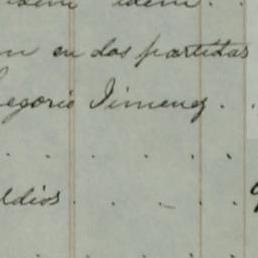 idem idem.
en dos partidas
Gregorio Jimenez . .
. . . .
ldios . . - .